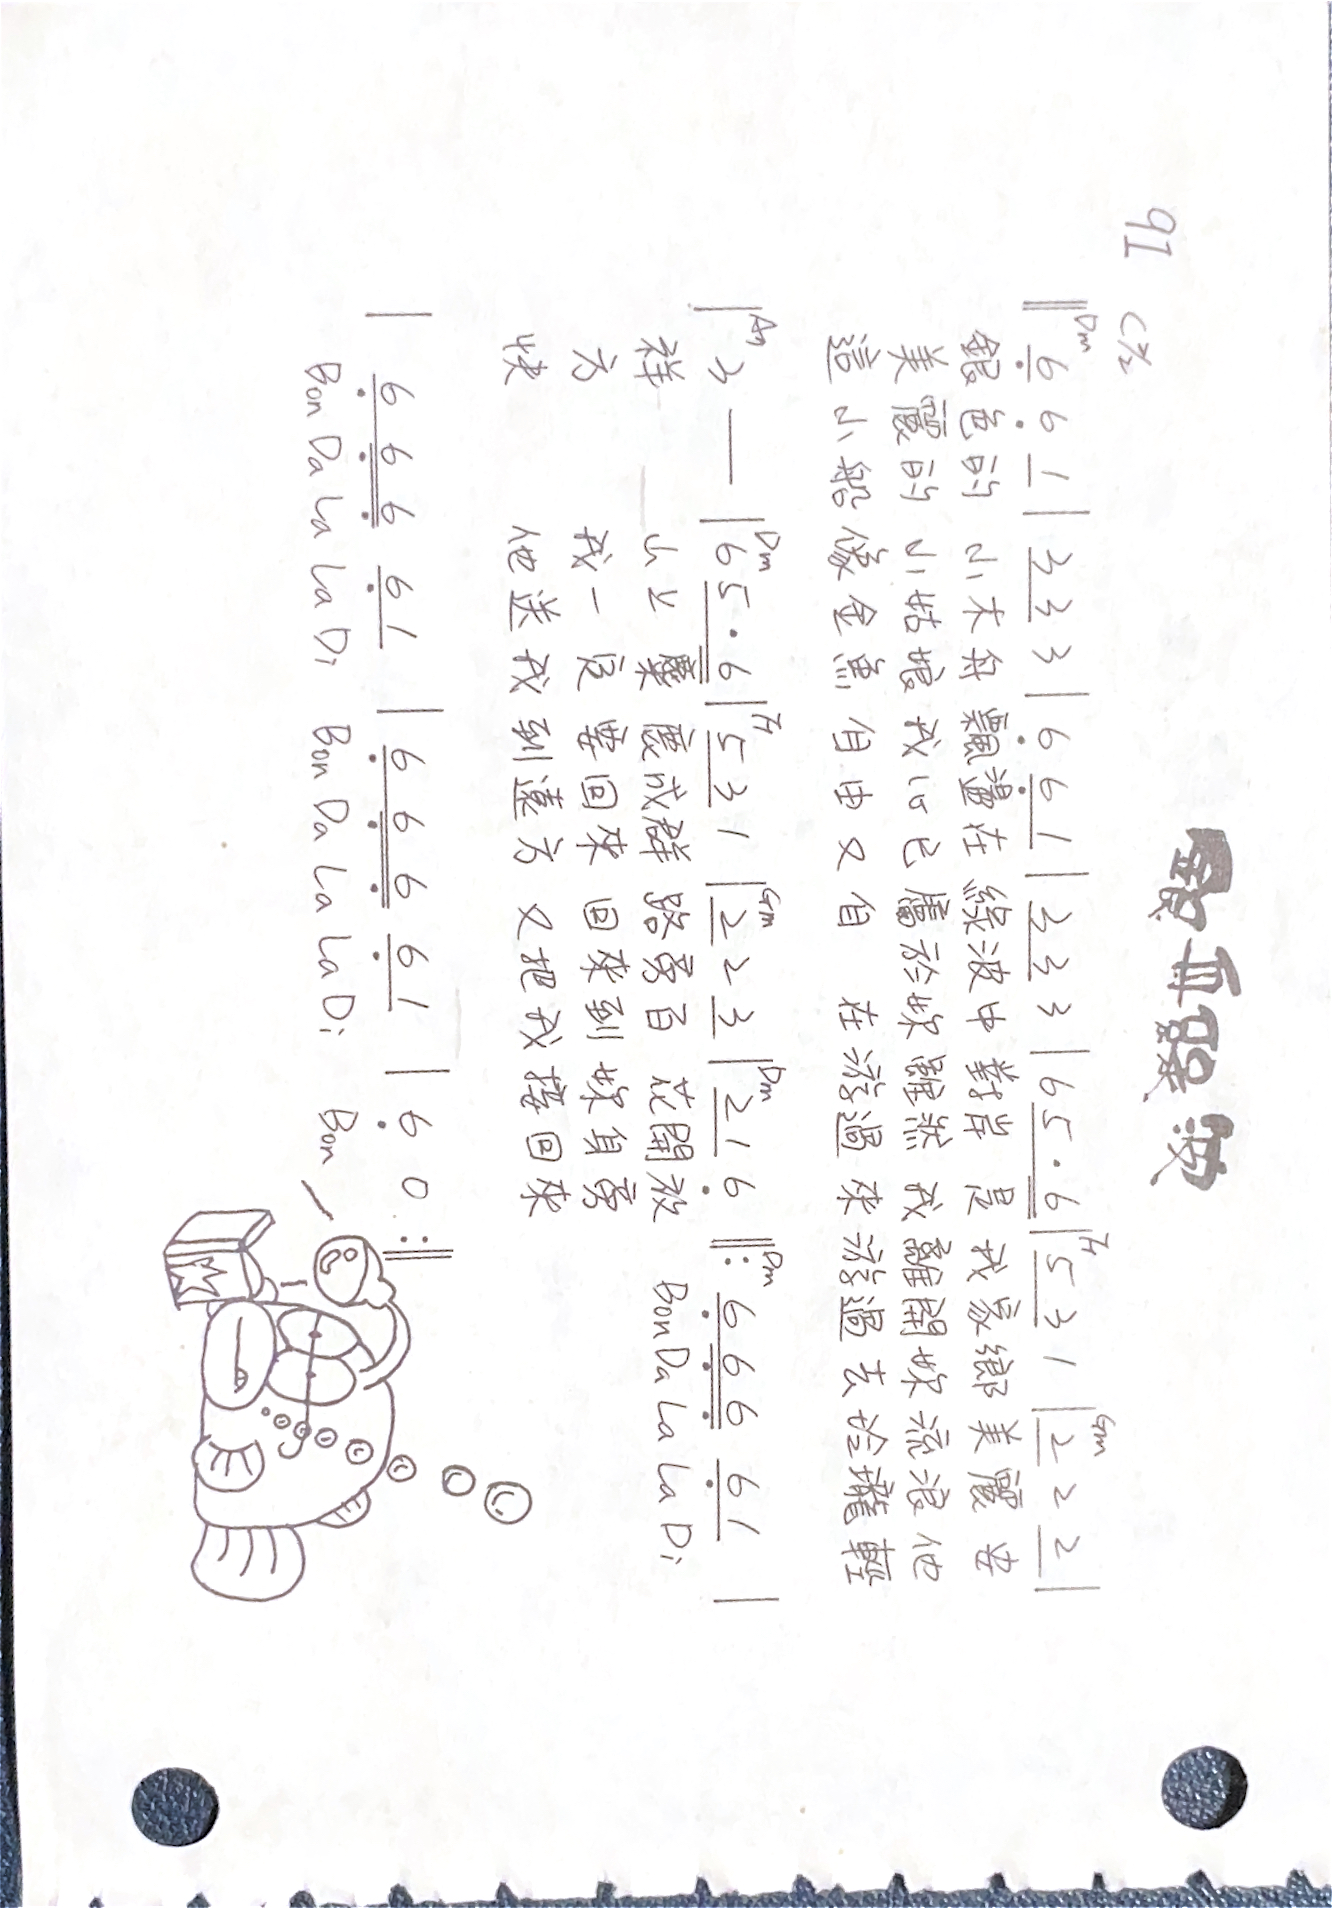 銀舟綠波
91 C 2/2
Dm F Gm
‖ 6 6 1 | 3 3 3 | 6 6 1 | 3 3 3 | 6 5 · 6 | 5 3 1 | 2 2 2 |
銀色的 小木舟 飄盪在 綠波中 對岸 是 我家鄉 美麗 安
美麗的 小姑娘 我心已 屬於妳 雖然 我 離開妳 流浪 他
這小船 像金魚 自由又自 在游過來 游過去 玲瓏 輕
A7 Dm F Gm Dm Dm
| 3 — | 6 5 · 6 | 5 3 1 | 2 2 3 | 2 1 6 ‖: 6 6 6 6 1 |
祥 山上 麋 鹿成群 路旁百 花開放 Bon Da La La Di
方 我一定 要回來 回來到 妳身旁
快 他送我 到遠方 又把我 接回來
| 6 6 6 6 1 | 6 6 6 6 1 | 6 0 :‖
Bon Da La La Di Bon Da La La Di Bon